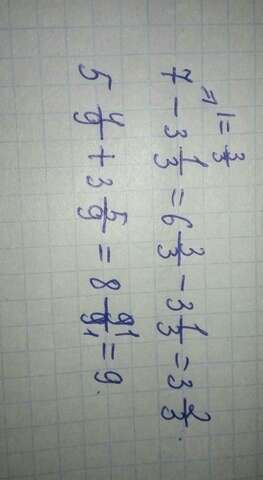 1 = 3/3
7 - 3 1/3 = 6 3/3 - 3 1/3 = 3 2/3.
5 4/9 + 3 5/9 = 8 9/9 1/1 = 9.